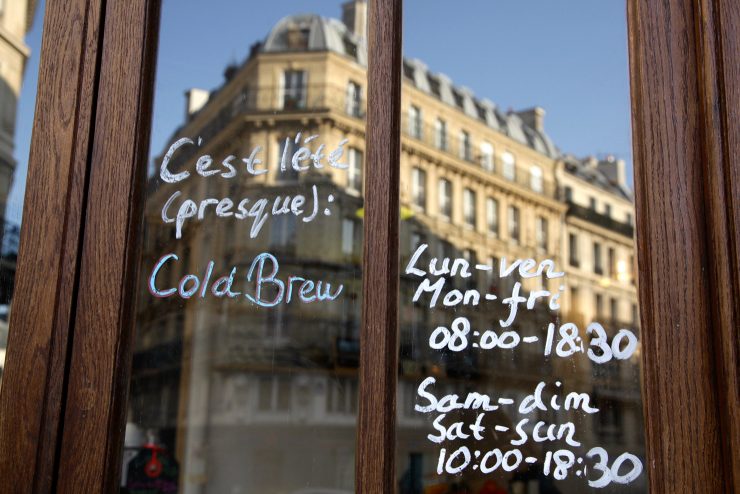 C'est l'été
(presque):
Cold Brew
Lun-ven
Mon-fri
08:00-18:30
Sam-dim
Sat-sun
10:00-18:30